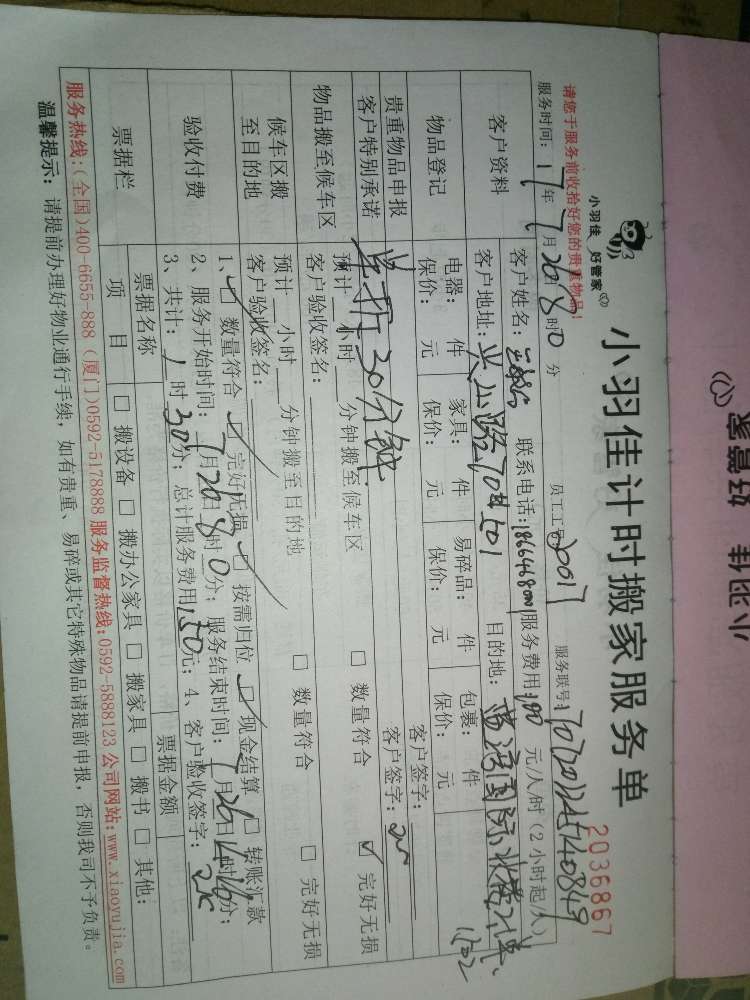 小羽佳 好管家
小羽佳计时搬家服务单
2036867
请您于服务前收拾好您的贵重物品!
服务时间: 17年7月20日8时0分 员工工号 服务联号:
客户资料 客户姓名: 联系电话: 服务费用100元/人/时(2小时起/人)
客户地址: 目的地:
物品登记 电器: 件 家具: 件 易碎品: 件 包裹: 件
保价: 元 保价: 元 保价: 元 保价: 元
贵重物品申报 客户签字:
客户特别承诺 单拆30分钟 客户签字:
物品搬至候车区 预计 小时 分钟搬至候车区 □ 数量符合 □ 完好无损
客户验收签名:
候车区搬至目的地 预计 小时 分钟搬至目的地 □ 数量符合 □ 完好无损
客户验收签名:
验收付费 1、□ 数量符合 □ 完好无损 □ 按需归位 □ 现金结算 □ 转账汇款
2、服务开始时间: 7月20日8时0分; 服务结束时间: 7月20日 时 分;
3、共计: 1时30分; 总计服务费用150元; 4、客户验收签字:
票据栏 票据名称 票据金额
项目 □ 搬设备 □ 搬办公家具 □ 搬家具 □ 搬书 □ 其他:
服务热线:(全国)400-6655-888 (厦门)0592-5178888 服务监督热线:0592-5888123 公司网站:www.xiaoyujia.com
温馨提示: 请提前办理好物业通行手续, 如有贵重、易碎或其它特殊物品请提前申报, 否则我司不予负责。
小羽佳 好管家